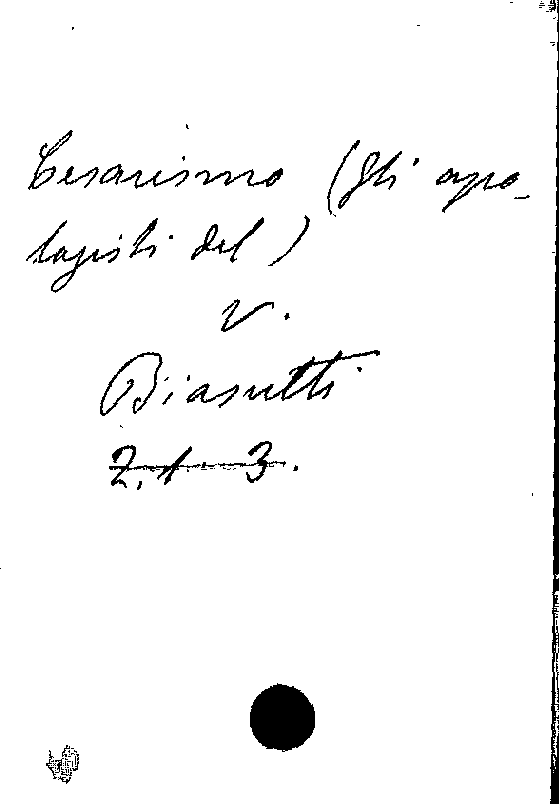 Cesarismo (Gli apo-
logisti del)
V.
Biasutti
Z. 1. 3.